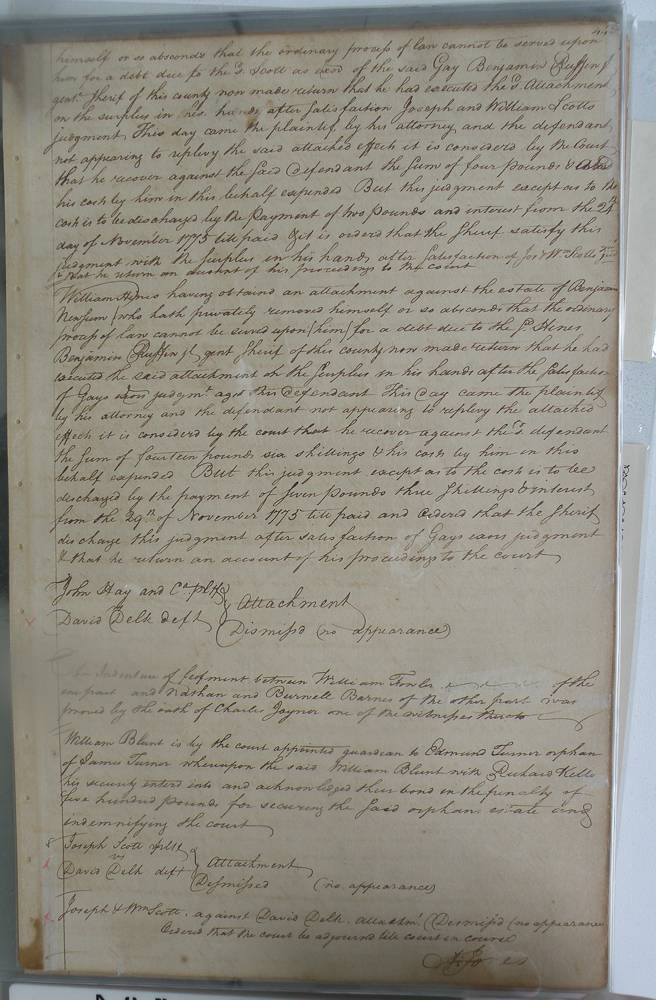 himself or so absconds that the ordinary process of law cannot be served upon
him for a debt due to the sd Scott as exor of the said Gay Benjamin Ruffin jr
gent. Sherif of this county now made return that he had executed the sd Attachment
in the surplus in his hands after satisfaction Joseph and William Scotts
judgment, This day came the plaintif by his attorney and the defendant
not appearing to replevy the said attached effects it is considered by the Court
that he recover against the said defendant the sum of four pounds &
his costs by him in this behalf expended But this judgment except as to the
costs is to be discharged by the payment of two pounds and interest from the 24
day of November 1775 till paid & it is ordered that the Sherif satisfy this
judgment with the surplus in his hands after satisfaction of Jos & Wm Scotts
& that he return an account of his proceedings to the court
William Hynes having obtained an attachment against the estate of Benjamin
Newsum (who hath privately removed himself or so absconds that the ordinary
process of law cannot be served upon (him) for a debt due to the sd Hines
Benjamin Ruffin jr gent Sherif of this county now made return that he had
executed the said attachment in the surplus in his hands after the satisfaction
of Gays exors judgmt agst this Defendant This day came the plaintif
by his attorney and the defendant not appearing to replevy the attached
effects it is considerd by the court that he recover against the sd. defendant
the sum of fourteen pounds six shillings & his costs by him in this
behalf expended But this judgment except as to the costs is to be
discharged by the payment of seven pounds three shillings & interest
from the 29th of November 1775 till paid and Ordered that the Sherif
discharge this judgment after satisfaction of Gays exors judgment
& that he return an account of his proceedings to the court
John Hay and Co pltf
Attachment
David Delk deft
Dismissd (no appearance)
Indenture of feofment between William Fowler of the
one part and Nathan and Burwell Barnes of the other part was
proved by the oath of Charles Joyner one of the witnesses thereto
William Blunt is by the court appointed guardian to Edmund Turner orphan
of James Turner whereupon the said William Blunt with Richard Kello
his security enterd into and acknowledged their bond in the penalty of
five hundred pounds for securing the said orphans estate and
indemnifying the court
Joseph Scott pltf
vs
Attachment
David Delk deft
Dismissed (no appearance)
Joseph & Wm Scott. against David Delk. Attachmt. (Dismissd (no appearance
Ordered that the court be adjournd till court in course